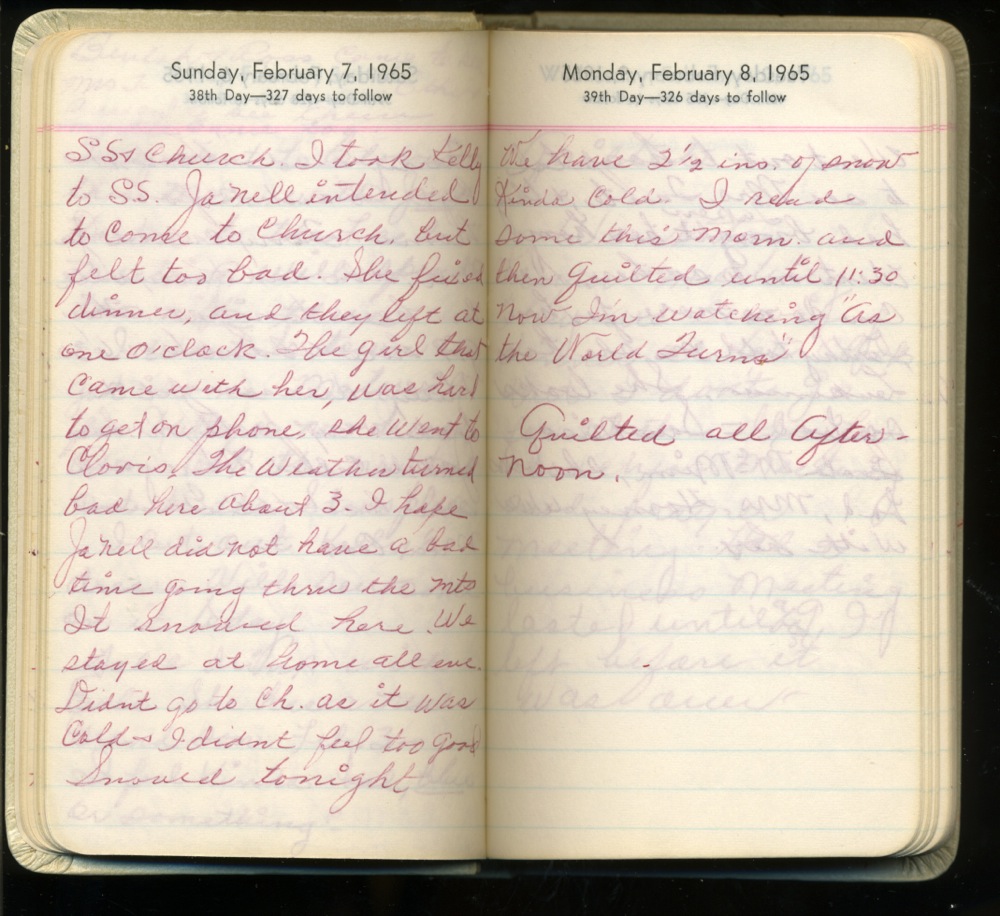 Sunday, February 7, 1965
38th Day—327 days to follow
SS & Church. I took Kelly
to SS. Ja Nell intended
to come to Church, but
felt too bad. She fixed
dinner, and they left at
one o'clock. The girl that
came with her, was hard
to get on phone, she went to
Clovis. The Weather turned
bad here about 3. I hope
Ja Nell did not have a bad
time going thru the mts
It snowed here. We
stayed at home all eve.
Didnt go to Ch. as it was
Cold & I didnt feel too good
Snowed tonight
Monday, February 8, 1965
39th Day—326 days to follow
We have 2 1/2 ins. of snow
Kinda Cold. I read
some this morn. and
then Quilted until 11:30
Now I'm watching "As
the World Turns"
Quilted all After-
noon.